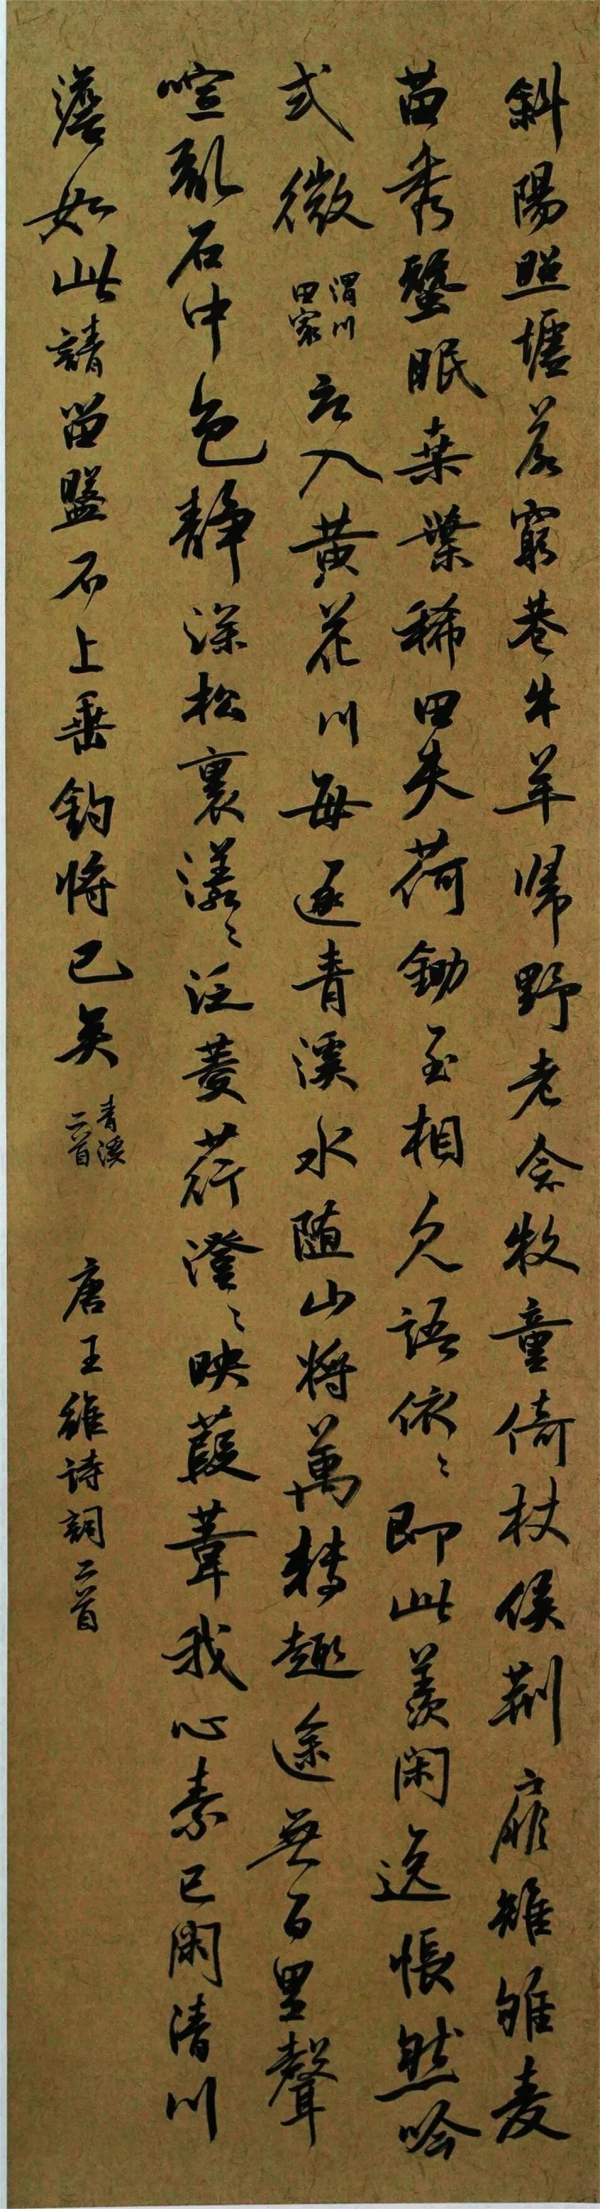 斜陽照墟落窮巷牛羊歸野老念牧童倚杖候荊扉雉雊麦
苗秀蠶眠桑葉稀田夫荷鋤至相見語依〻即此羨閑逸悵然吟
式微 渭川田家 言入黃花川每逐青溪水随山將萬轉趣途無百里聲
喧亂石中色靜深松裏漾〻泛菱荇澄〻映葭葦我心素已閑清川
澹如此請留盤石上垂釣將已矣 青溪二首 唐王維詩詞二首